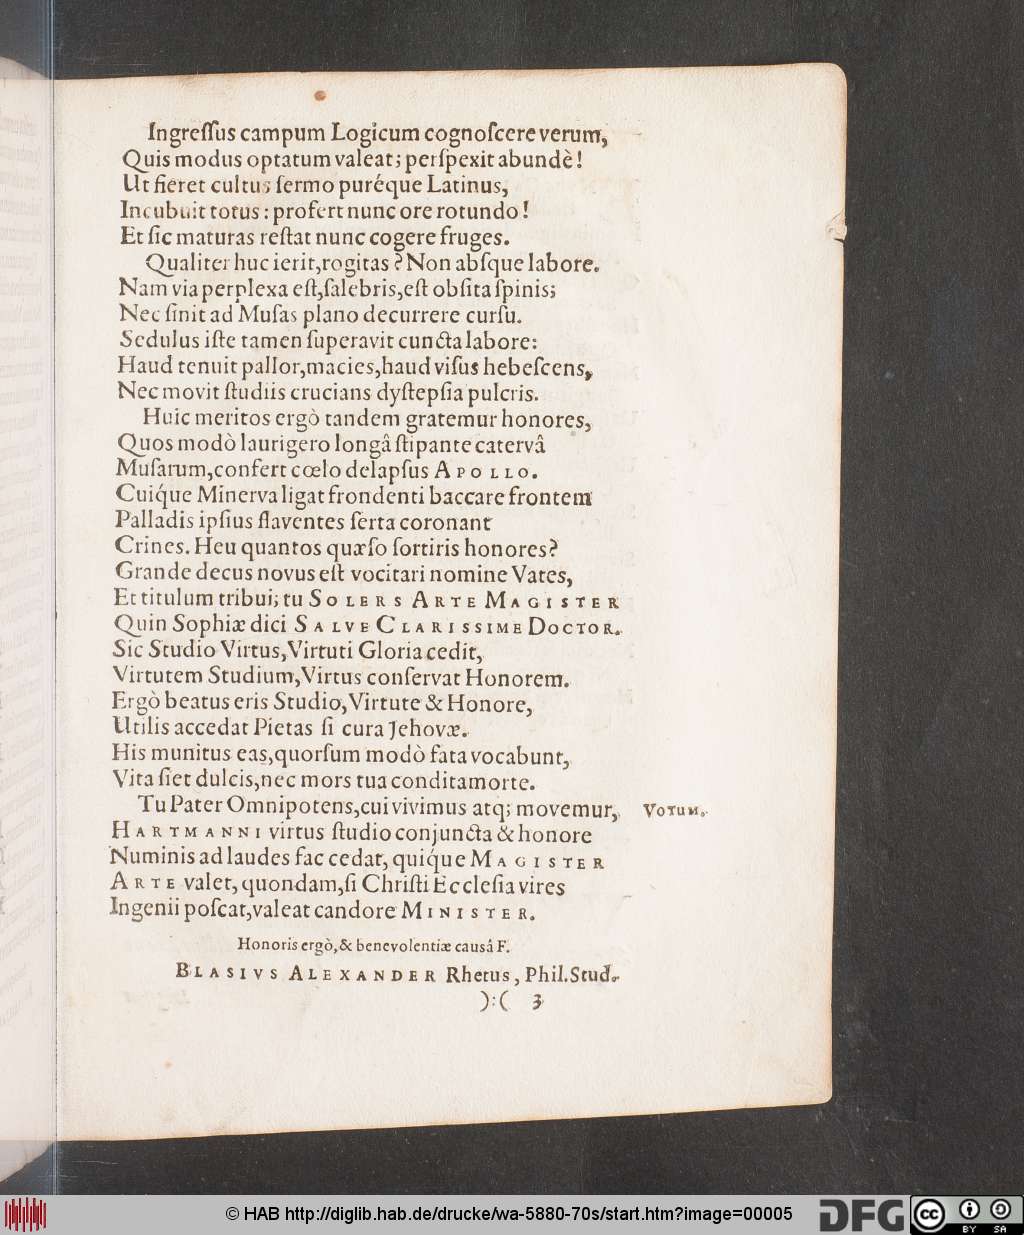 Ingreſſus campum Logicum cognoſcere verum,
Quis modus optatum valeat; perſpexit abundè!
Ut fieret cultus ſermo puréque Latinus,
Incubuit totus: profert nunc ore rotundo!
Et ſic maturas reſtat nunc cogere fruges.
Qualiter huc ierit, rogitas? Non abſque labore.
Nam via perplexa eſt, ſalebris, eſt obſita ſpinis;
Nec ſinit ad Muſas plano decurrere curſu.
Sedulus iſte tamen ſuperavit cuncta labore:
Haud tenuit pallor, macies, haud viſus hebeſcens,
Nec movit ſtudiis crucians dyſtepſia pulcris.
Huic meritos ergò tandem gratemur honores,
Quos modò laurigero longâ ſtipante catervâ
Muſarum, confert cœlo delapſus APOLLO.
Cuiq́ue Minerva ligat frondenti baccare frontem
Palladis ipſius flaventes ſerta coronant
Crines. Heu quantos quæſo ſortiris honores?
Grande decus novus eſt vocitari nomine Vates,
Et titulum tribui; tu SOLERS ARTE MAGISTER
Quin Sophiæ dici SALVE CLARISSIME DOCTOR.
Sic Studio Virtus, Virtuti Gloria cedit,
Virtutem Studium, Virtus conſervat Honorem.
Ergò beatus eris Studio, Virtute & Honore,
Utilis accedat Pietas ſi cura Jehovæ.
His munitus eas, quorſum modò fata vocabunt,
Vita ſiet dulcis, nec mors tua condita morte.
Tu Pater Omnipotens, cui vivimus atq; movemur, VOTUM.
HARTMANNI virtus ſtudio conjuncta & honore
Numinis ad laudes fac cedat, quiq́ue MAGISTER
ARTE valet, quondam, ſi Chriſti Eccleſia vires
Ingenii poſcat, valeat candore MINISTER.
Honoris ergò, & benevolentiæ causâ F.
BLASIVS ALEXANDER Rhetus, Phil. Stud.
):( 3
© HAB http://diglib.hab.de/drucke/wa-5880-70s/start.htm?image=00005
DFG
cc BY SA